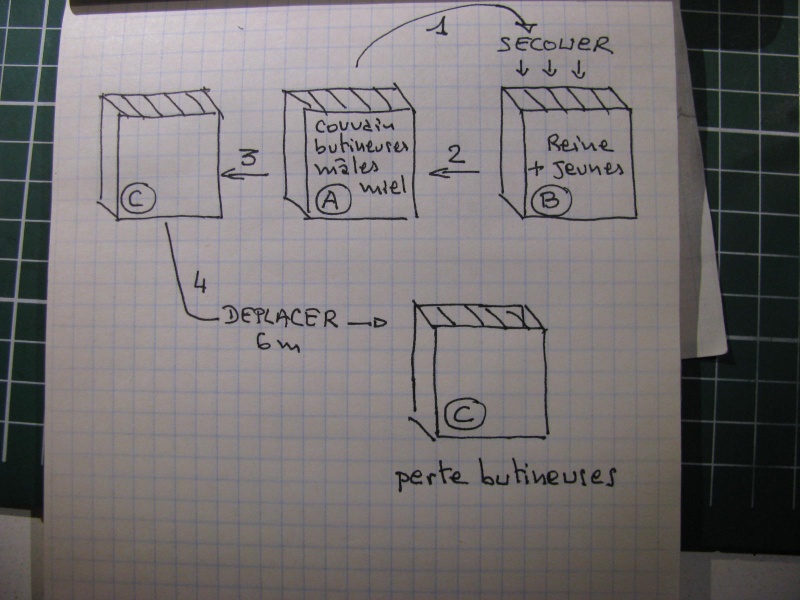 1
SECOUER
couvain
butineuses
mâles
miel
A
Reine
+ Jeunes
B
2
3
C
4
DEPLACER
6m
C
perte butineuses